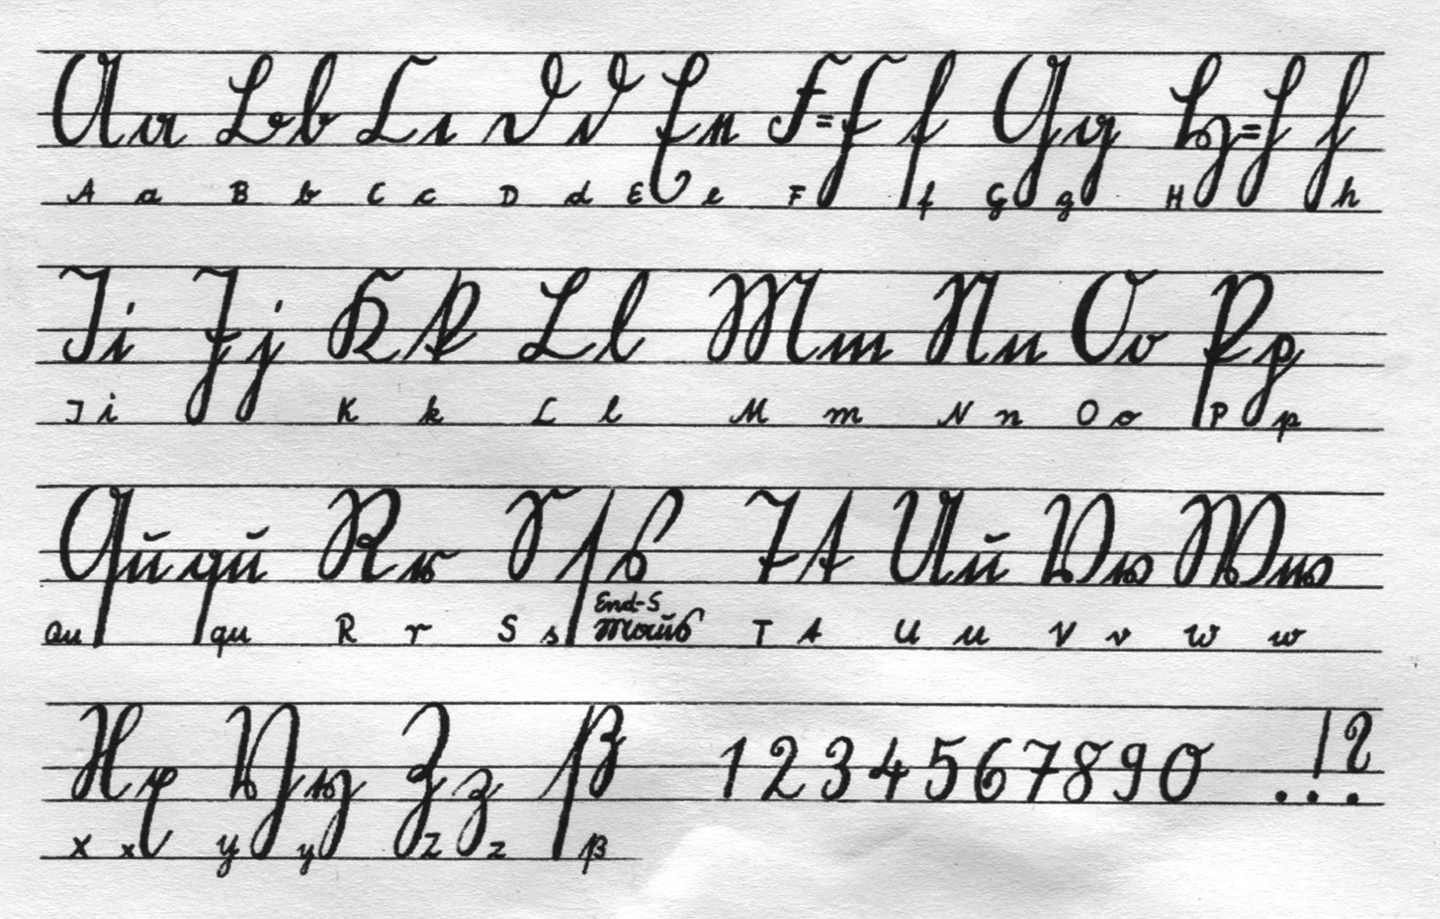 A a B b C c D d E e F = F f G g H = H h
A a B b C c D d E e F f G g H h
I i J j K k L l M m N n O o P p
I i K k L l M m N n O o P p
Qu qu R r S s s T t U u V v W w
Qu qu R r S s End-S Maus T t U u V v W w
X x Y y Z z ß 1 2 3 4 5 6 7 8 9 0 . ! ?
x x y y Z z ß